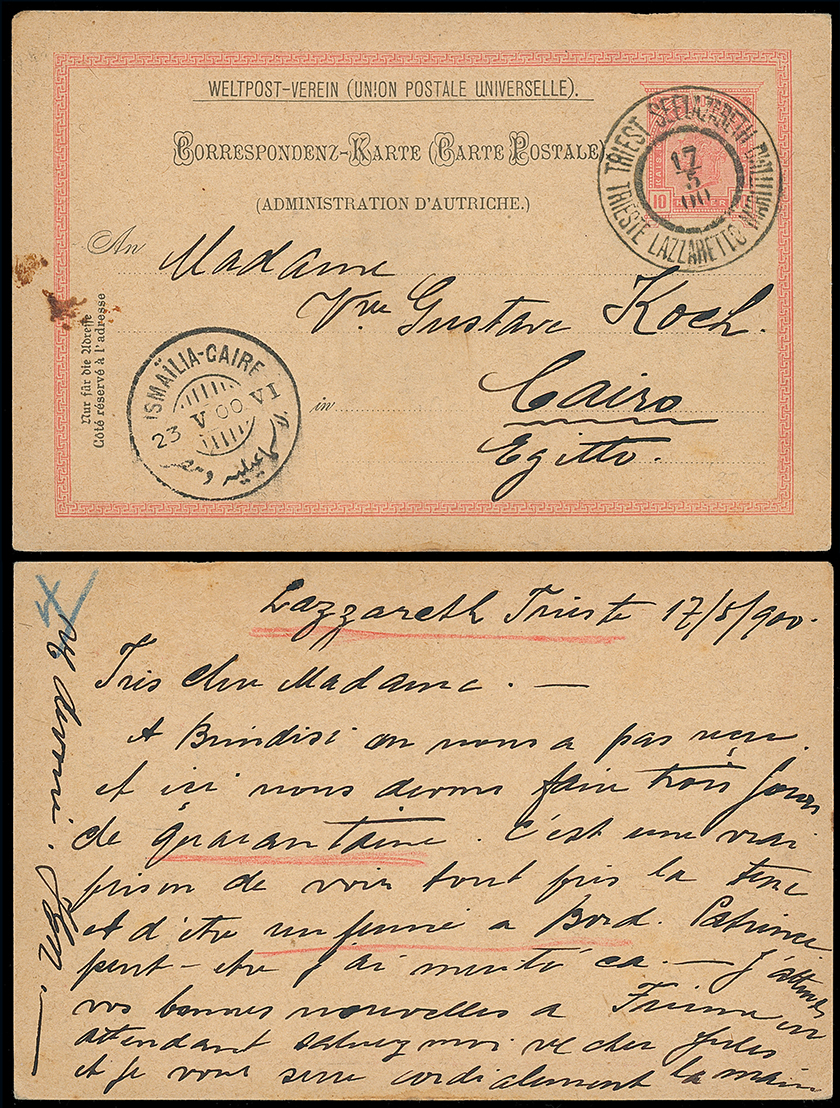 WELTPOST-VEREIN (UNION POSTALE UNIVERSELLE).
CORRESPONDENZ-KARTE (CARTE POSTALE)
(ADMINISTRATION D'AUTRICHE.)
TRIEST SEELAZARETH
17
5
00
TRIESTE LAZZARETTO MARITTIMO
10
An Madame
Vve Gustave Koch.
in Cairo
Egitto.
Nur für die Adresse
Côté réservé à l'adresse
ISMAÏLIA-CAIRE
23 V 00 VI
Lazzareth Trieste 17/5/900.
Très chère Madame. —
A Brindisi on nous a pas
et ici nous devons faire trois jours
de quarantaine. C'est une vrai
prison de voir tout près la terre
et d'être a Bord. Patience
peut-etre j'ai merité ça — J'attends
vos bonnes nouvelles a en
attendant saluez moi
et je vous serre cordialement la main